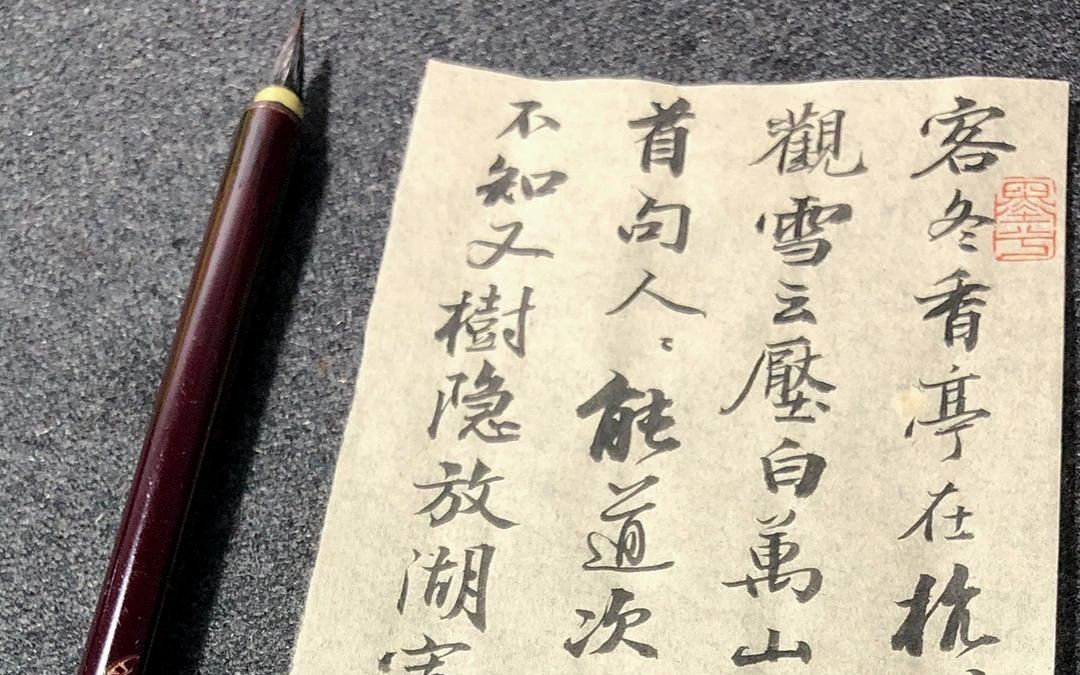 客冬香亭在杭
觀雪云壓白萬山
首句人〻能道次
不知又樹隐放湖